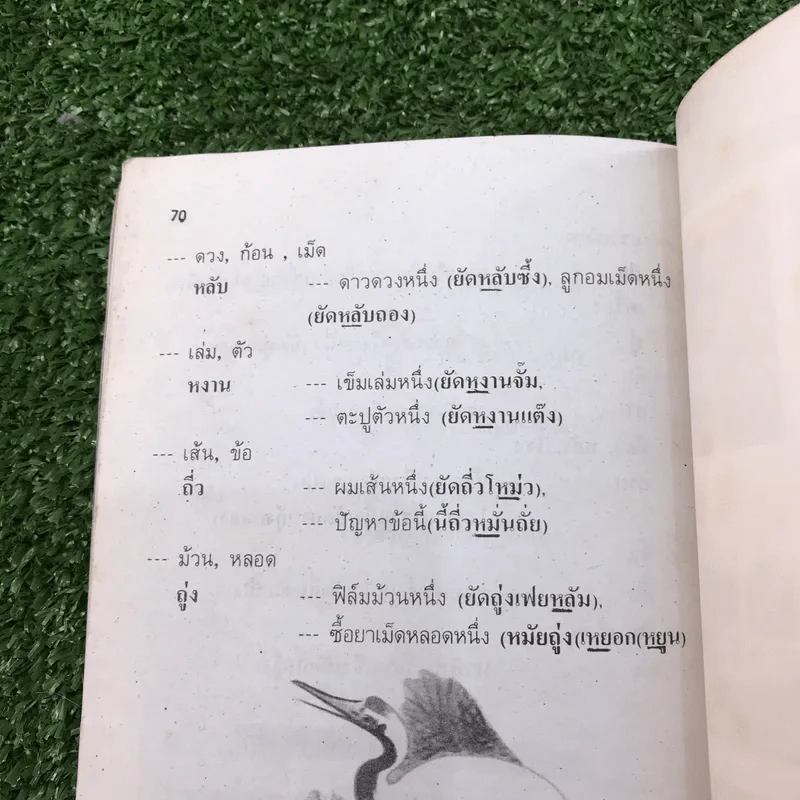 70
--- ดวง, ก้อน , เม็ด
หลับ --- ดาวดวงหนึ่ง (ยัดหลับซึ้ง), ลูกอมเม็ดหนึ่ง
(ยัดหลับถอง)
--- เล่ม, ตัว
หงาน --- เข็มเล่มหนึ่ง(ยัดหงานจั๊ม,
--- ตะปูตัวหนึ่ง (ยัดหงานแต๊ง)
--- เส้น, ข้อ
ถี่ว --- ผมเส้นหนึ่ง(ยัดถี่วโหม่ว),
--- ปัญหาข้อนี้(นี้ถี่วหมั่นถั่ย)
--- ม้วน, หลอด
ถู่ง --- ฟิล์มม้วนหนึ่ง (ยัดถู่งเฟยหลัม),
--- ซื้อยาเม็ดหลอดหนึ่ง (หมัยถู่ง(เหยอก(หยูน)